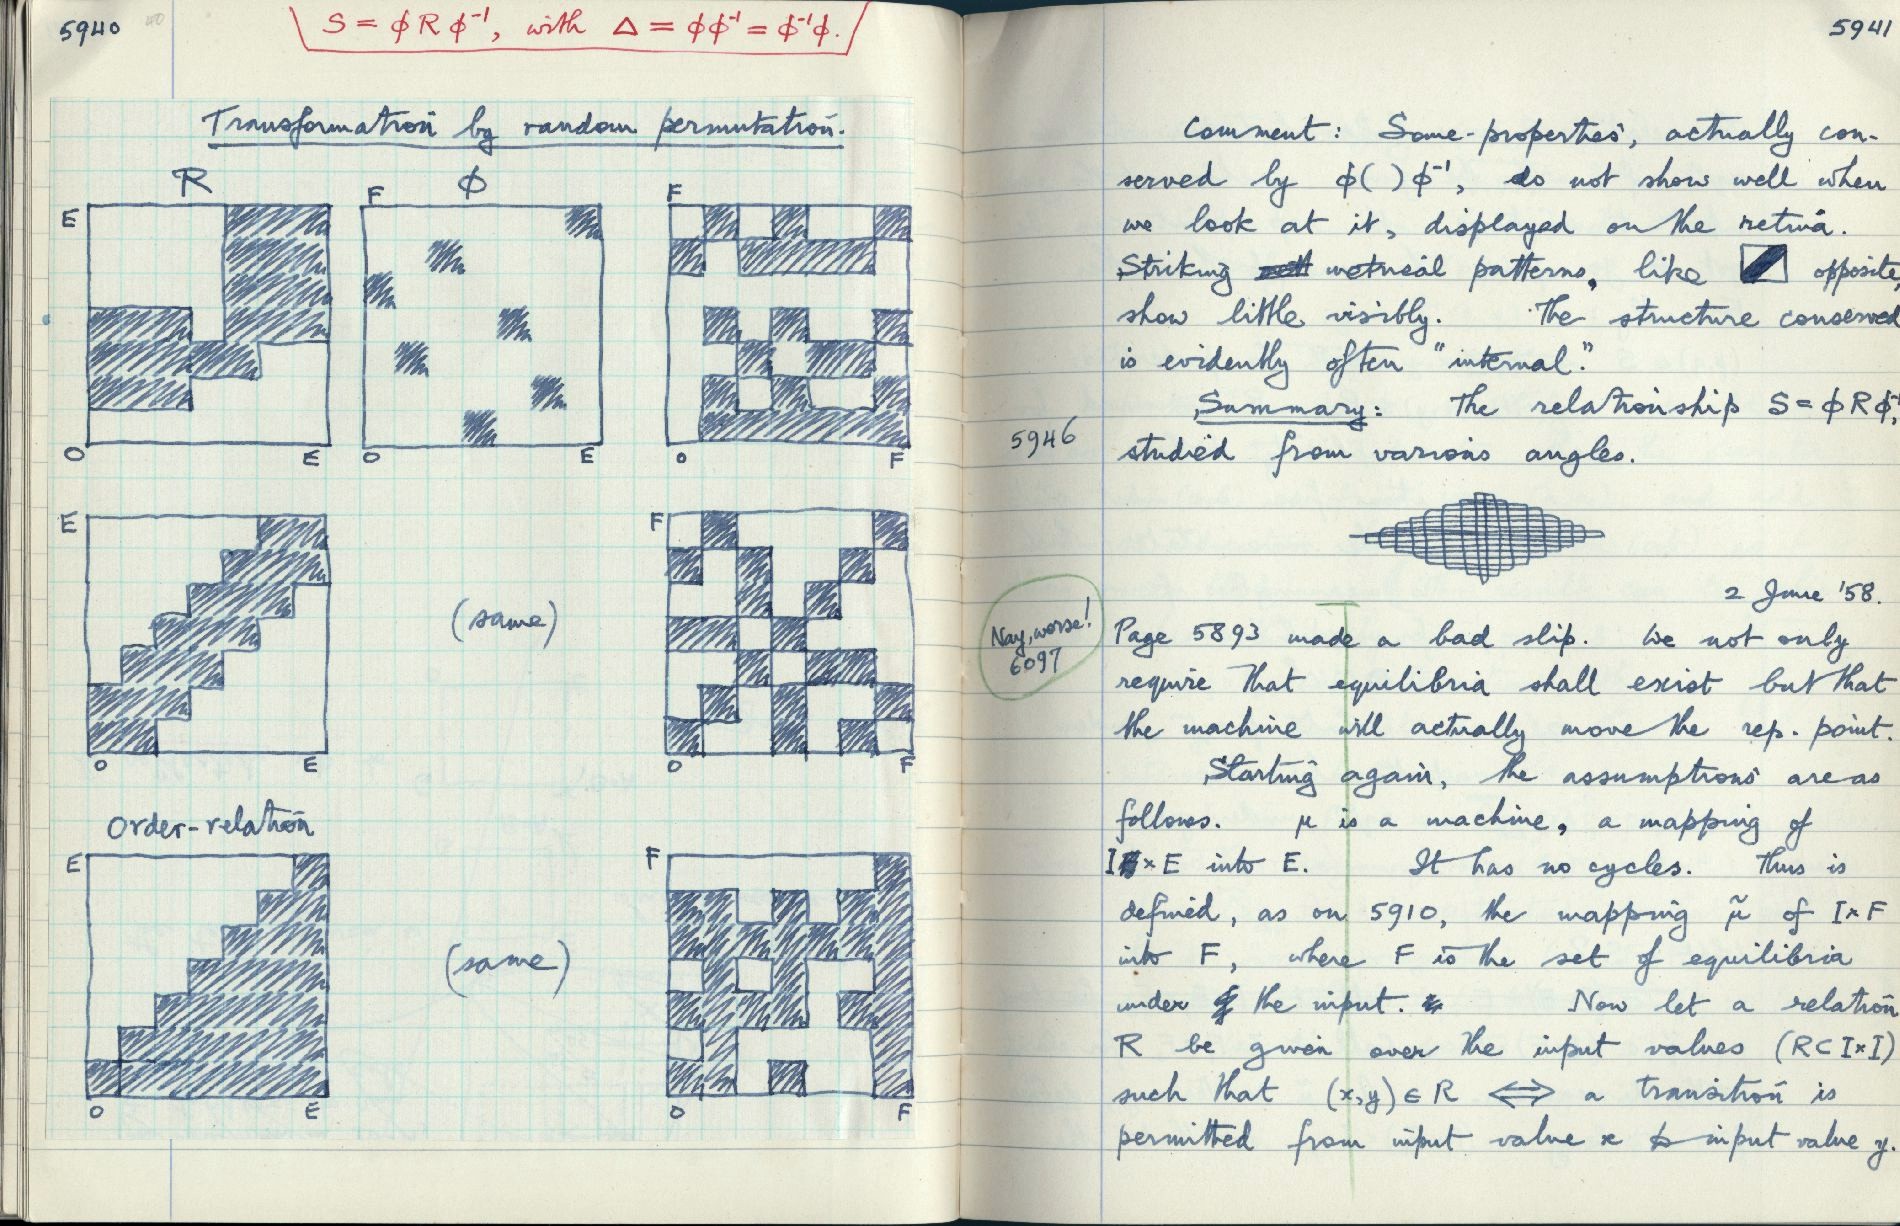 5940
S = φ R φ⁻¹, with Δ = φφ⁻¹ = φ⁻¹φ.
Transformation by random permutation.
R φ
E F F
O E O E O F
E (same) F
O E O F
Order-relation
E (same) F
O E O F
5941
Comment: Some properties, actually con-
served by φ( )φ⁻¹, do not show well when
we look at it, displayed on the retina.
Striking metrical patterns, like opposite,
show little visibly. The structure conserved
is evidently often "internal".
Summary: The relationship S = φ R φ⁻¹,
5946
studied from various angles.
2 June '58.
Nay, worse!
6097
Page 5893 made a bad slip. We not only
require that equilibria shall exist but that
the machine will actually move the rep. point.
Starting again, the assumptions are as
follows. μ is a machine, a mapping of
I × E into E. It has no cycles. Thus is
defined, as on 5910, the mapping μ̃ of I × F
into F, where F is the set of equilibria
under the input. Now let a relation
R be given over the input values (R ⊂ I × I)
such that (x,y) ∈ R ⟺ a transition is
permitted from input value x to input value y.